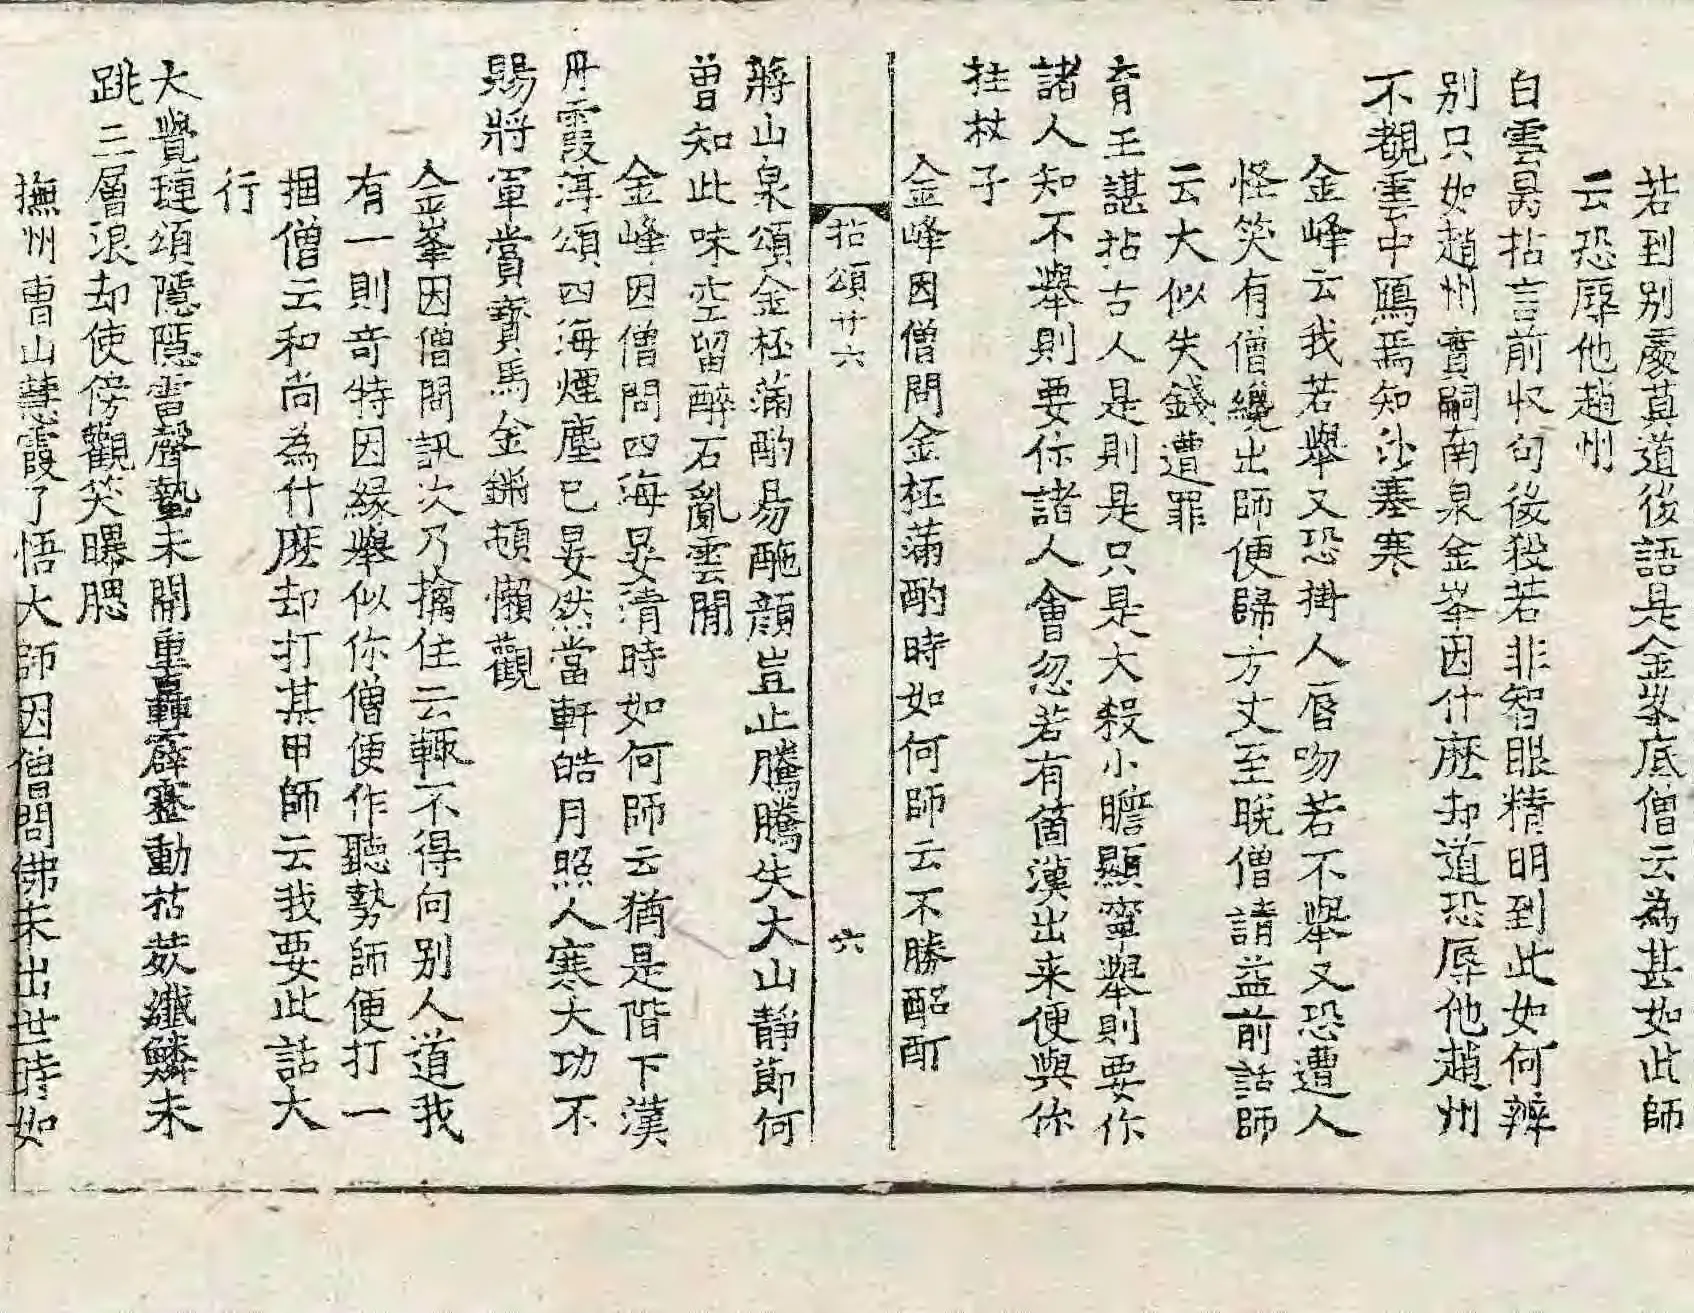 若到别處莫道後語是金峯底僧云為甚如此師
云恐辱他趙州
白雲昺拈言前収句後殺若非智眼精明到此如何辨
别只如趙州實嗣南泉金峯因什麽却道恐辱他趙州
不覩雲中鴈焉知沙塞寒
金峰云我若舉又恐掛人唇吻若不舉又恐遭人
怪笑有僧纔出師便歸方丈至晚僧請益前話師
云大似失錢遭罪
育王諶拈古人是則是只是大殺小膽顯寧舉則要你
諸人知不舉則要你諸人會忽若有箇漢出来便與你
拄杖子
金峰因僧問金柸滿酌時如何師云不勝酩酊
拈頌廿六 六
蔣山泉頌金柸滿酌易酏顔豈止騰騰失大山靜節何
曾知此味空留醉石亂雲閒
金峰因僧問四海晏清時如何師云猶是階下漢
丹霞淳頌四海煙塵已晏然當軒皓月照人寒大功不
賜將軍賞寶馬金鏘頓懶觀
金峯因僧問訊次乃擒住云輙不得向别人道我
有一則奇特因緣舉似你僧便作聽勢師便打一
摑僧云和尚為什麽却打某甲師云我要此話大
行
大覺璉頌隱隱雷聲蟄未開重轟霹靂動枯荄纖鱗未
跳三層浪却使傍觀笑曝腮
撫州曹山慧霞了悟大師因僧問佛未出世時如